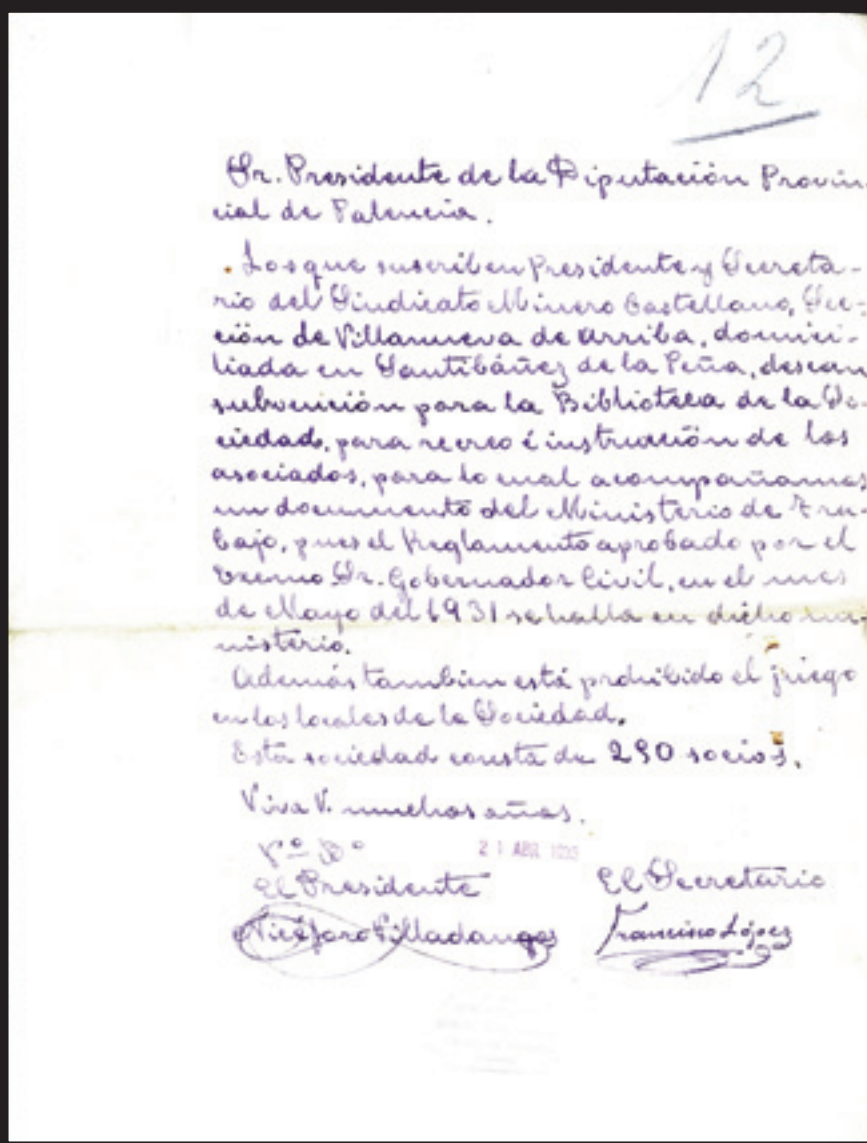 12
Sr. Presidente de la Diputación Provin-
cial de Palencia.
Los que suscriben Presidente y Secreta-
rio del Sindicato Minero Castellano, Sec-
ción de Villanueva de arriba, domici-
liada en Santibáñez de la Peña, desean
subvención para la Biblioteca de la So-
ciedad, para recreo é instrucción de los
asociados, para lo cual acompañamos
un documento del Ministerio de Tra-
bajo, pues el Reglamento aprobado por el
Excmo Sr. Gobernador Civil, en el mes
de Mayo del 1931 se halla en dicho mi-
nisterio.
Además tambien está prohibido el juego
en los locales de la Sociedad.
Esta sociedad consta de 290 socios.
Viva V. muchos años.
Vº Bº
21 ABR
El Presidente El Secretario
Nicéforo Villadangos Francisco López